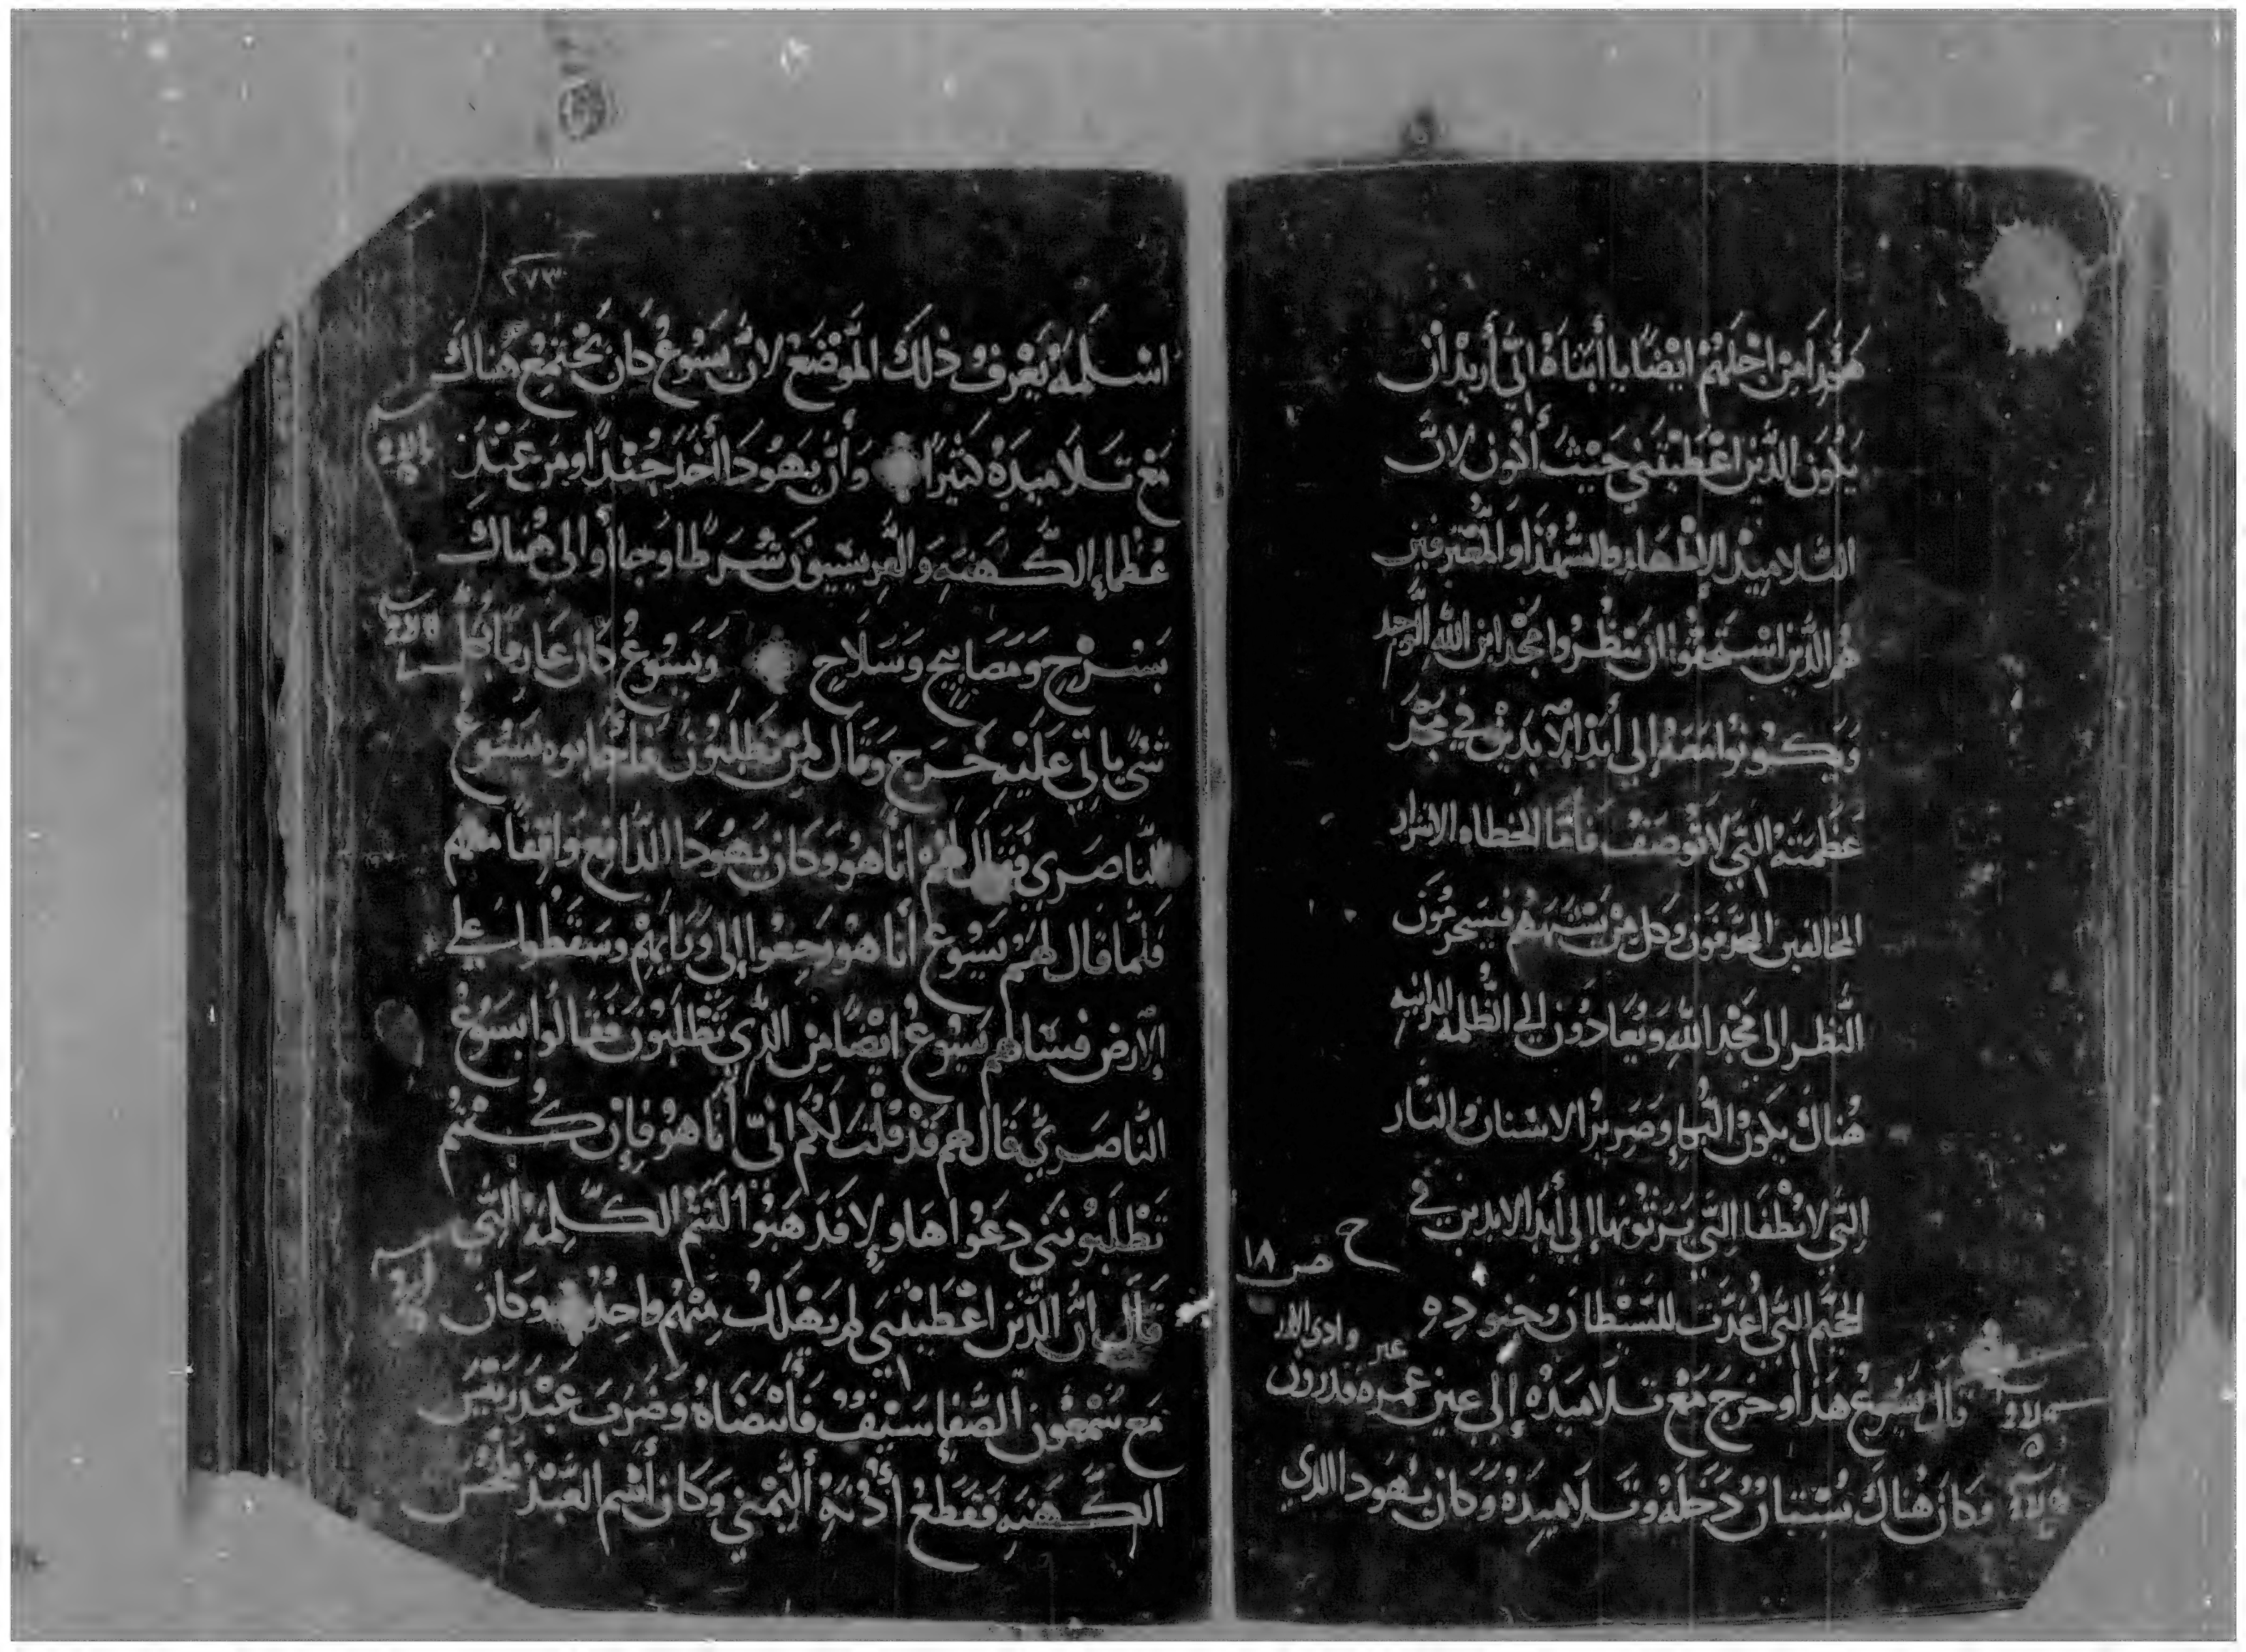 هذا من اجلهم ايضا يا أبتاه إني أريد ان
يكون الذين اعطيتني حيث أكون لان
التلاميذ الاطهار والشهدا والمعترفين
هم الذين استحقوا ان ينظروا مجد ابن الله الوحيد
ويكونوا معه إلى أبد الابدين في مجد
عظمته التي لا توصف فأما الخطاه الاشرار
المخالفين المجدفون وكل من يشبههم فيحرمون
النظر الى مجد الله ويعادون الى الظلمه البرانيه
هناك يكون البكاء وصرير الاسنان والنار
التي لا تطفا التي يرثونها إلى أبد الابدين في
الجحيم التي أعدت للشيطان وجنوده
ح
ص ١٨
عبر وادي الارز
قال يسوع هذا وخرج مع تلاميذه إلى عين قدرون
وكان هناك بستان دخله وتلاميذه وكان يهودا الذي
٢٧٣
اسلمه يعرف ذلك الموضع لان يسوع كان يجتمع هناك
مع تلاميذه كثيرا وأن يهودا أخذ جندا ومن عند
عظماء الكهنه والفريسيون شرطا وجاأوا الى هناك
بسرج ومصابيح وسلاح ويسوع كان عارفا بكل
شي ياتي عليه خرج وقال لمن تطلبون فأجابوه يسوع
الناصري فقال لهم أنا هو وكان يهودا الدافع واقفا معهم
فلما قال لهم يسوع أنا هو رجعوا إلى ورايهم وسقطوا على
الارض فسالهم يسوع ايضا من الذي تطلبون فقالوا يسوع
الناصري قال لهم قد قلت لكم اني أنا هو فإن كنتم
تطلبونني دعوا هاولاء فذهبوا لتتم الكلمة التي
قال ان الذين اعطيتني لم يهلك منهم واحد وكان
مع سمعون الصفا سيف فأنتضاه وضرب عبد ريس
الكهنه فقطع أذنه اليمني وكان أسم العبد ملخس